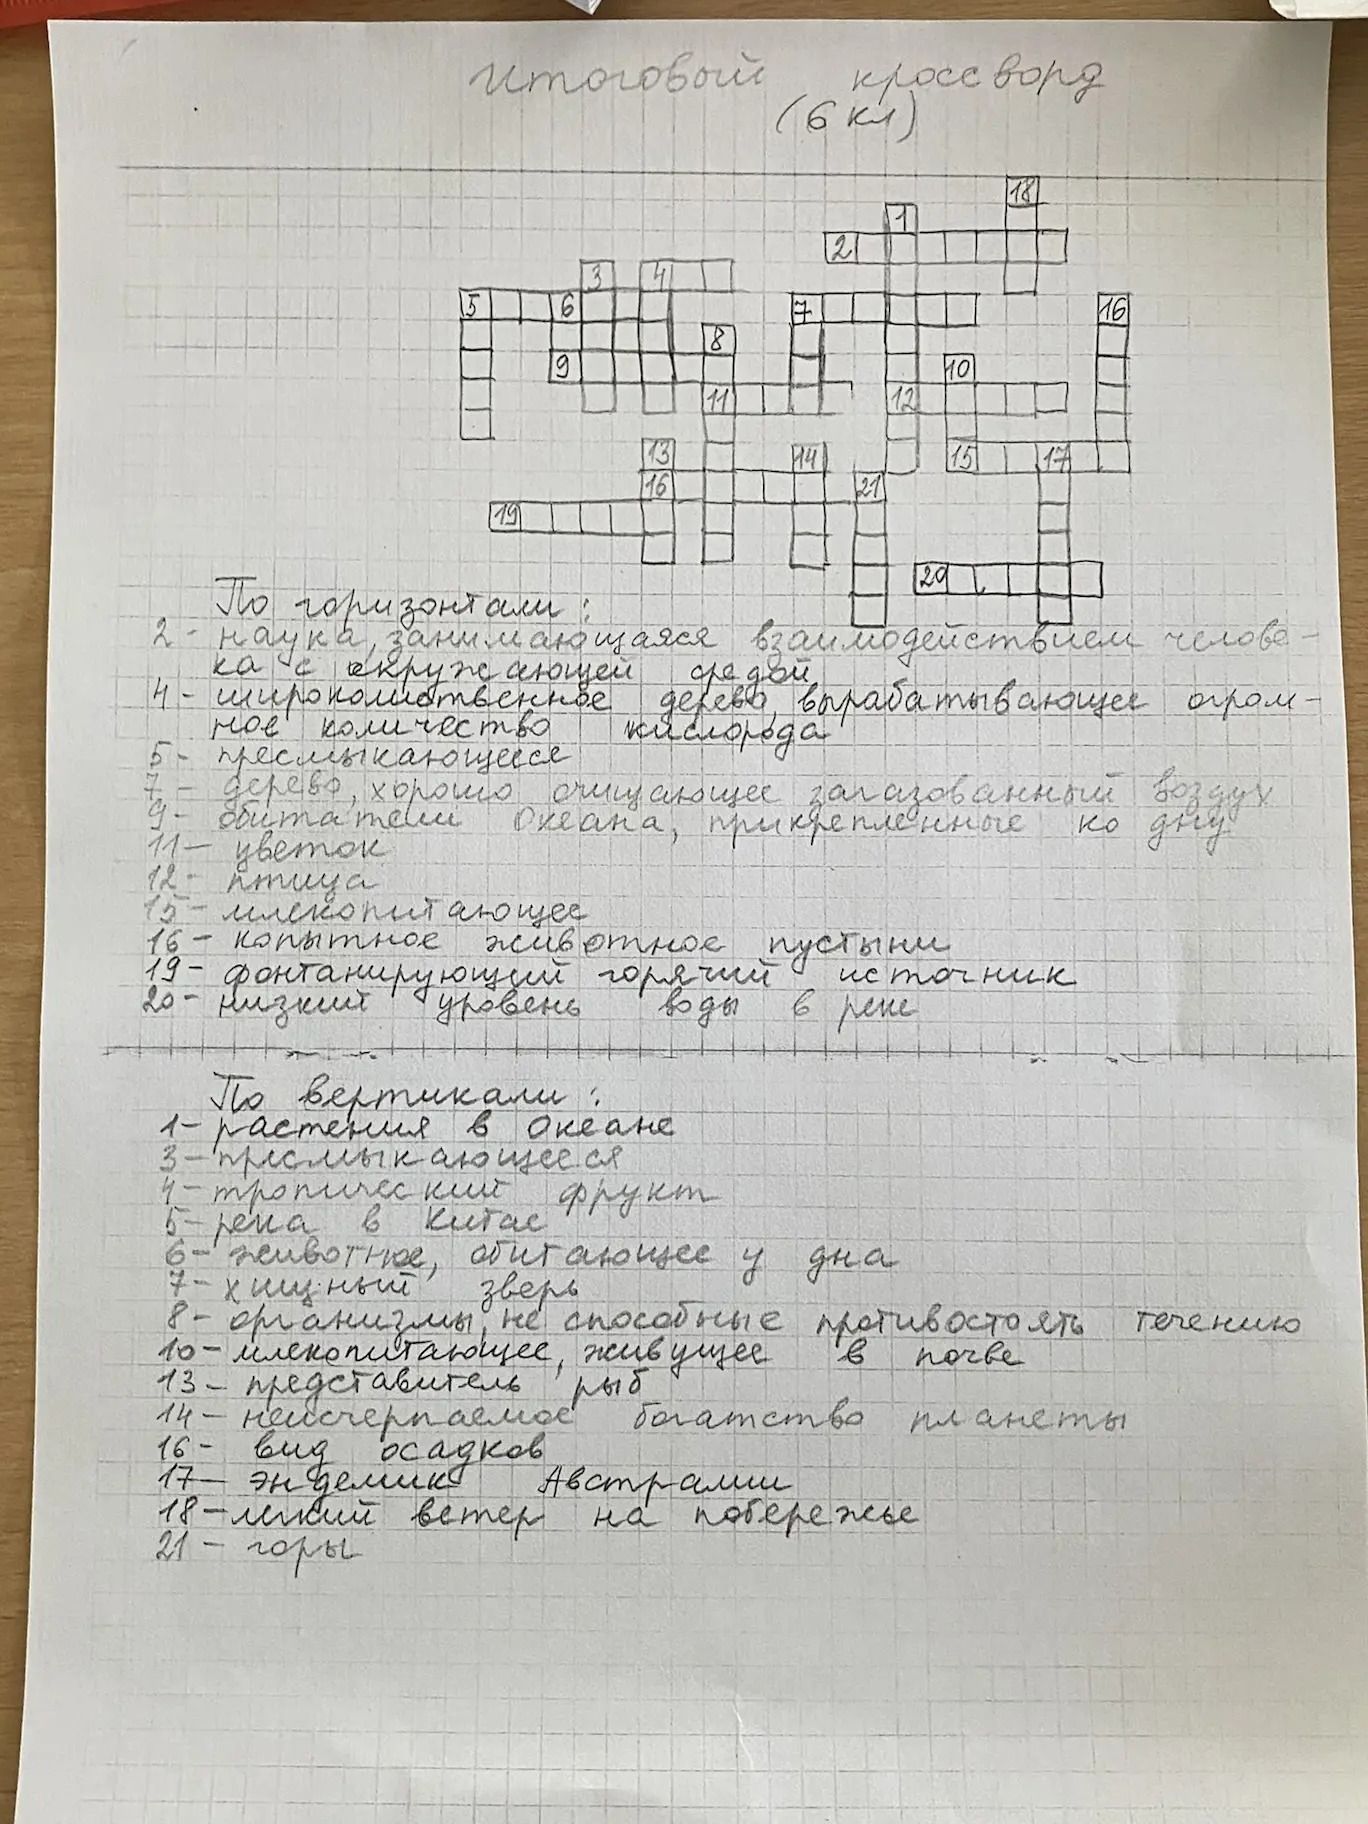 Итоговый кроссворд
(6 кл)
18
1
2
3 4
5 6 7 16
8
9 10
11 12
13 14 15 17
16 21
19
20
По горизонтали:
2- наука, занимающаяся взаимодействием челове-
ка с окружающей средой
4- широколиственное дерево, вырабатывающее огром-
ное количество кислорода
5- пресмыкающееся
7- дерево, хорошо очищающее загазованный воздух
9- обитатели Океана, прикрепленные ко дну
11- цветок
12- птица
15- млекопитающее
16- копытное животное пустыни
19- фонтанирующий горячий источник
20- низкий уровень воды в реке
По вертикали:
1- растения в Океане
3- пресмыкающееся
4- тропический фрукт
5- река в Китае
6- животное, обитающее у дна
7- хищный зверь
8- организмы, не способные противостоять течению
10- млекопитающее, живущее в почве
13- представитель рыб
14- неисчерпаемое богатство планеты
16- вид осадков
17- эндемик Австралии
18- легкий ветер на побережье
21- горы